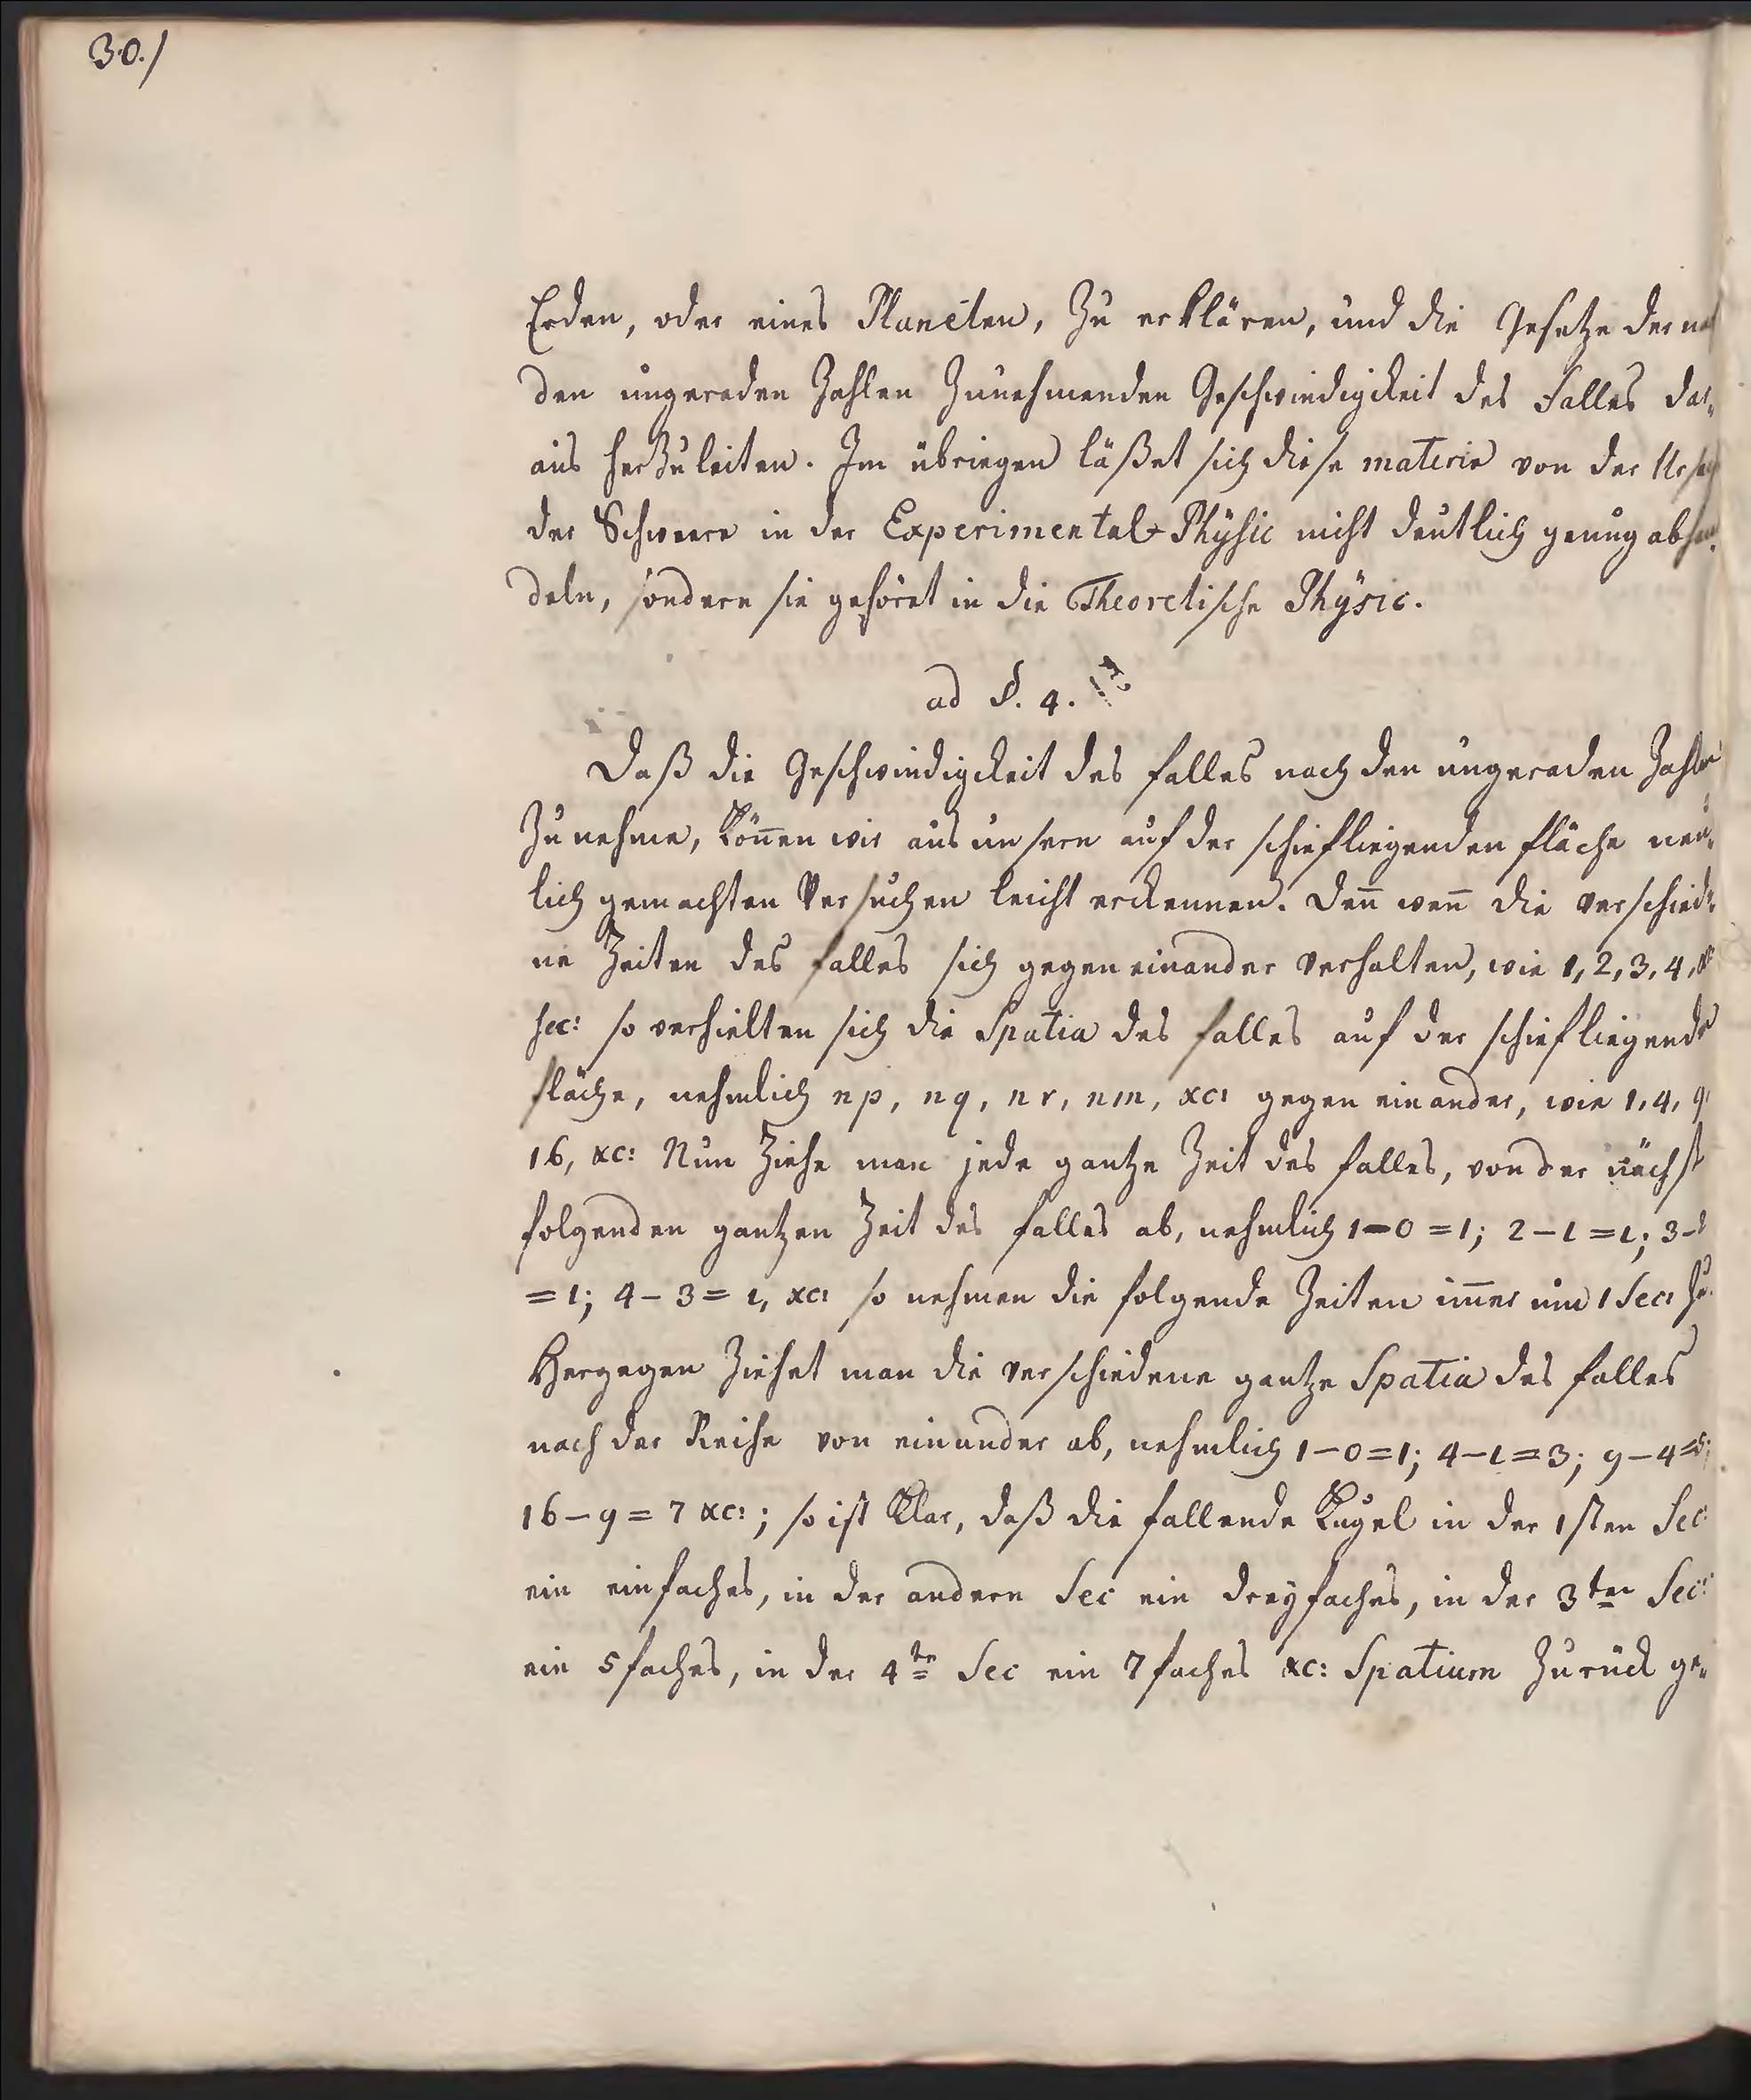 30./
Erden, oder eines Planeten, zu erklären, und die Gesetze der nach
den ungeraden Zahlen zunehmenden Geschwindigkeit des Falles dar„
aus herzuleiten. Im übrigen läßet sich diese materie von der Ursach
der Schwere in der Experimental-Physic nicht deutlich genug abhan„
deln, sondern sie gehöret in die Theoretische Physic.
ad §. 4.
Daß die Geschwindigkeit des falles nach den ungeraden Zahlen
zunehme, können wir aus unsern auf der schiefliegenden fläche neu„
lich gemachten Versuchen leicht erckennen. Denn̅ wen̅ die verschiede„
ne Zeiten des falles sich gegen einander verhalten, wie 1, 2, 3, 4, xc
sec: so verhielten sich die Spatia des falles auf der schiefliegenden
fläche, nehmlich np, nq, nr, nm, xc: gegen einander, wie 1, 4, 9,
16, xc: Nun ziehe man jede gantze Zeit des falles, von der nächst
folgenden gantzen Zeit des falles ab, nehmlich 1-0=1; 2-1=1; 3-2
=1; 4-3=1, xc: so nehmen die folgende Zeiten im̅er um 1 Sec: zu.
Hergegen ziehet man die verschiedene gantze Spatia des falles
nach der Reihe von einander ab, nehmlich 1-0=1; 4-1=3; 9-4=5;
16-9=7 xc:; so ist klar, daß die fallende Kugel in der 1sten Sec:
ein einfaches, in der andern Sec ein dreyfaches, in der 3ten Sec:
ein 5faches, in der 4te Sec ein 7faches xc: Spatium zurück ge„